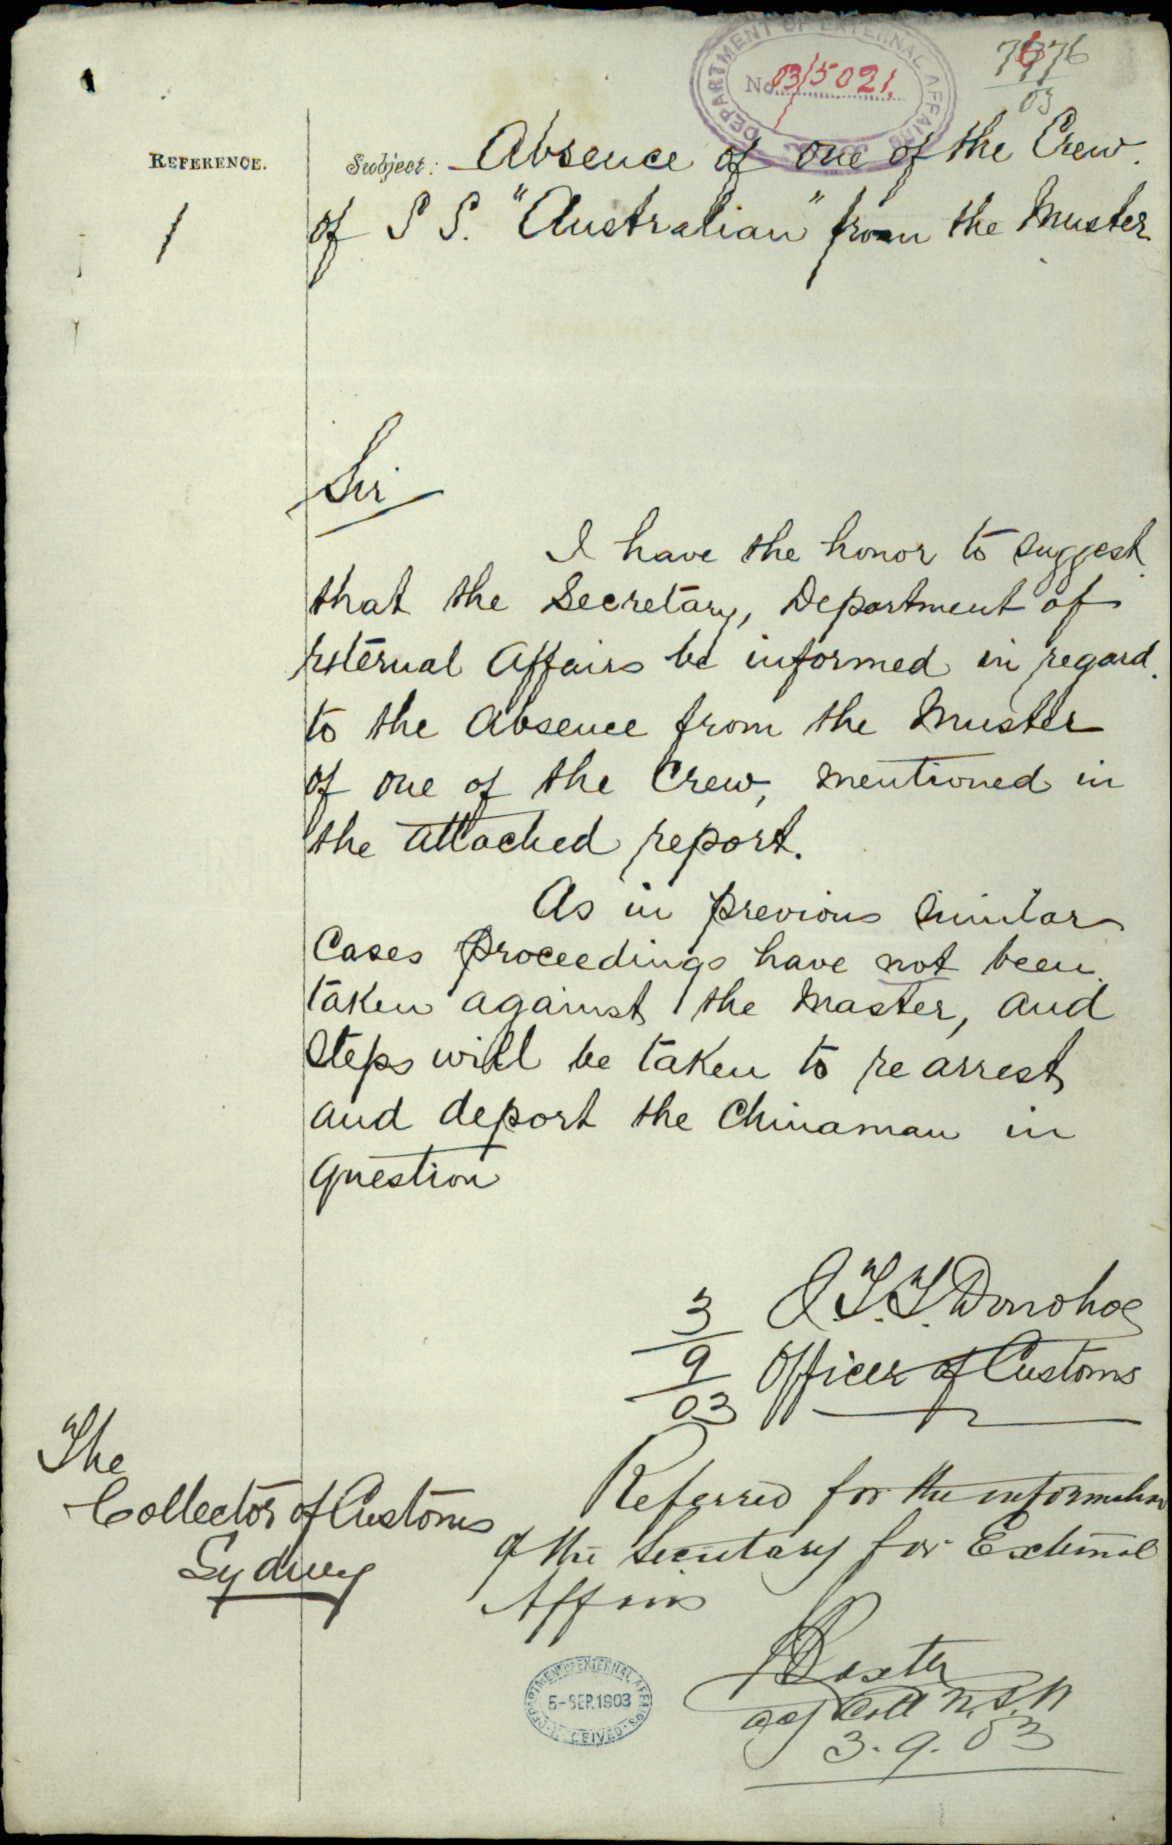 DEPARTMENT OF EXTERNAL AFFAIRS
No. 03/5021.
03
REFERENCE.
1
Subject: Absence of one of the Crew.
of S S. "Australian" from the Muster
Sir
I have the honor to suggest
that the Secretary, Department of
External Affairs be informed in regard
to the Absence from the Muster
of one of the Crew, mentioned in
the attached report.
As in previous similar
Cases proceedings have not been
taken against the Master, and
Steps will be taken to re arrest
and deport the Chinaman in
Question
J. T. T. Donohoe
3/9/03 Officer of Customs
The
Collector of Customs
Sydney
Referred for the information
of the Secretary for External
Affairs
Baxter
Actg Coll N.S.W
3.9.03
DEPARTMENT OF EXTERNAL AFFAIRS
5-SEP.1903
RECEIVED